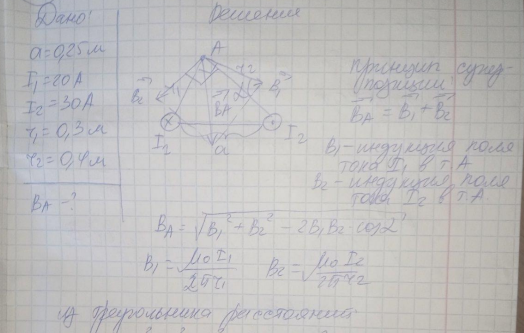 Дано:
a = 0,25 м
I₁ = 20 А
I₂ = 30 А
r₁ = 0,3 м
r₂ = 0,4 м
B_A - ?
Решение
A
r₁ r₂
B₂ B₁
B_A
α
I₂ a I₂
принцип супер-
позиции
B_A = B₁ + B₂
B₁ - индукция поля
тока I₁ в т. А
B₂ - индукция поля
тока I₂ в т. А
B_A = √B₁² + B₂² - 2B₁B₂ cos α
B₁ = μ₀ I₁ / 2π r₁ B₂ = √μ₀ I₂ / 2π r₂
треугольника расстояний